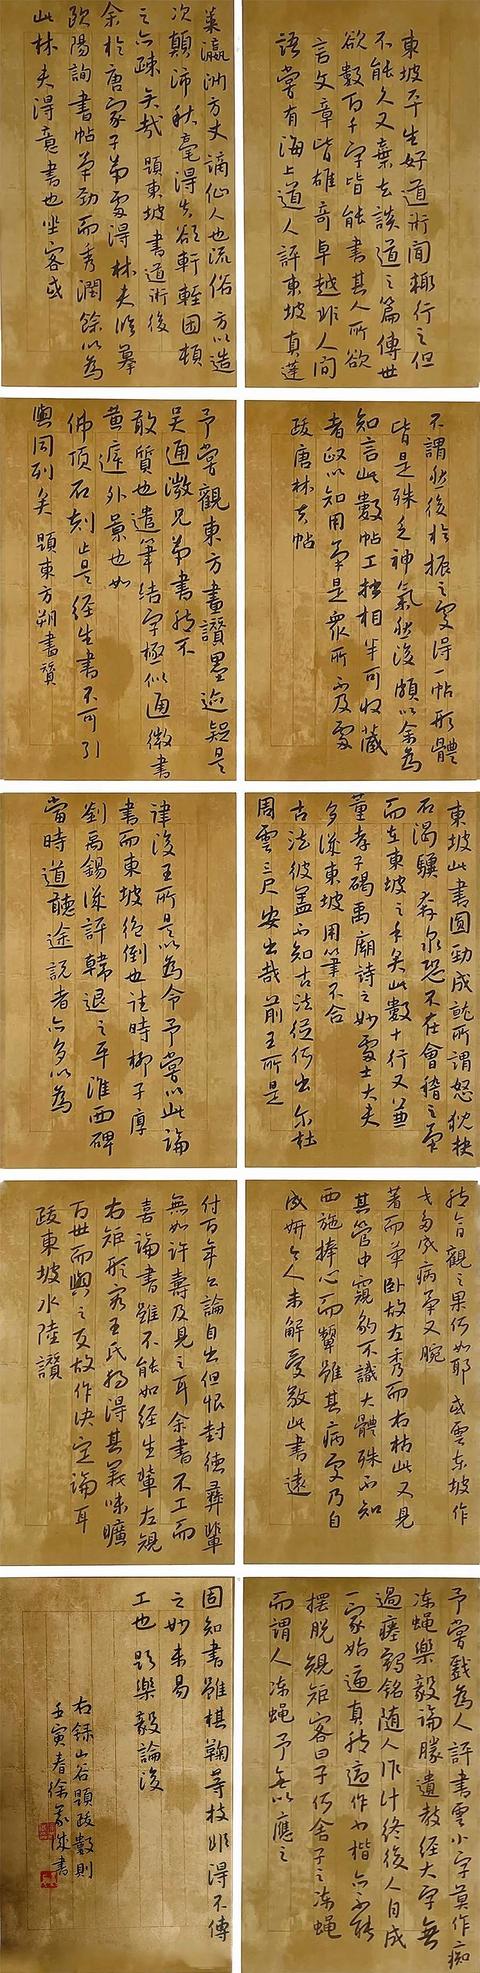 東坡平生好道術聞輒行之但
不能久又棄去談道之篇傳世
欲數百千字皆能書其人所欲
言文章皆雄奇卓越非人間
語嘗有海上道人評東坡真蓬
萊瀛洲方丈謫仙人也流俗方以造
次顛沛秋毫得失欲軒輊困頓
之亦疎矣哉 題東坡書道術後
余於唐家子弟處得林夫臨摹
歐陽詢書帖筆勁而秀潤餘以為
此林夫得意書也坐客或
不謂然後於振之處得一帖形體
皆是殊乏神氣然後頗以余為
知言此數帖工拙相半可收藏
者政以知用筆是衆所不及處
跋唐林夫帖
予嘗觀東方畫讚墨迹疑是
吳通微兄弟書然不
敢質也遣筆結字極似通微書
黄庭外景也如
佛頂石刻止是經生書不可引
與同列矣 題東方朔畫贊
東坡此書圓勁成就所謂怒猊抉
石渴驥奔泉恐不在會稽之筆
而在東坡之手矣此數十行又兼
董孝子碣禹廟詩之妙處士大夫
多譏東坡用筆不合
古法彼蓋不知古法從何出尔杜
周雲三尺安出哉前王所是
律後王所是以為令予嘗以此論
書而東坡絕倒也往時柳子厚
劉禹錫譏評韓退之平淮西碑
當時道聽途説者亦多以為
然今觀之果何如耶或雲東坡作
戈多成病筆又腕
著而筆卧故左秀而右枯此又見
其管中窺豹不識大體殊不知
西施捧心而顰雖其病處乃自
成妍今人未解愛敬此書遠
付百年公論自出但恨封德彝輩
無如許壽及見之耳余書不工而
喜論書雖不能如經生輩左規
右矩形容王氏獨得其義味曠
百世而與之友故作決定論耳
跋東坡水陸讚
予嘗戲為人評書雲小字莫作癡
凍蝇樂毅論勝遺教經大字無
過瘞鶴銘随人作計終後人自成
一家始逼真然適作小楷亦不能
擺脱規矩客曰子何舍子之凍蝇
而謂人凍蝇予無以應之
固知書雖棋鞠等技非得不傳
之妙未易
工也 題樂毅論後
右録山谷題跋數則
壬寅春徐
書